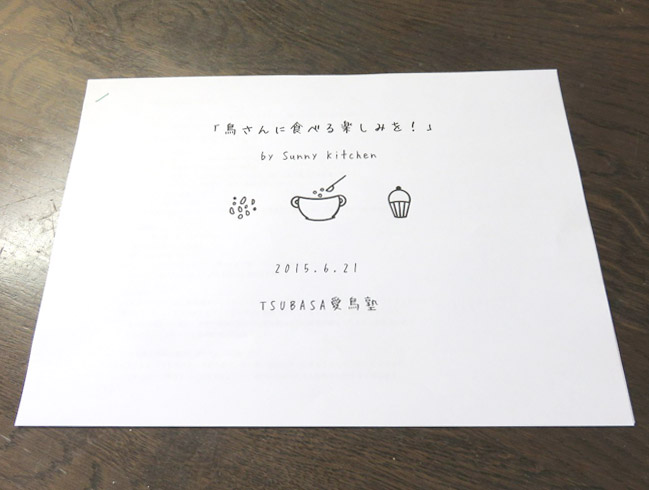 「鳥さんに食べる楽しみを！」
by Sunny kitchen
2015.6.21
TSUBASA愛鳥塾